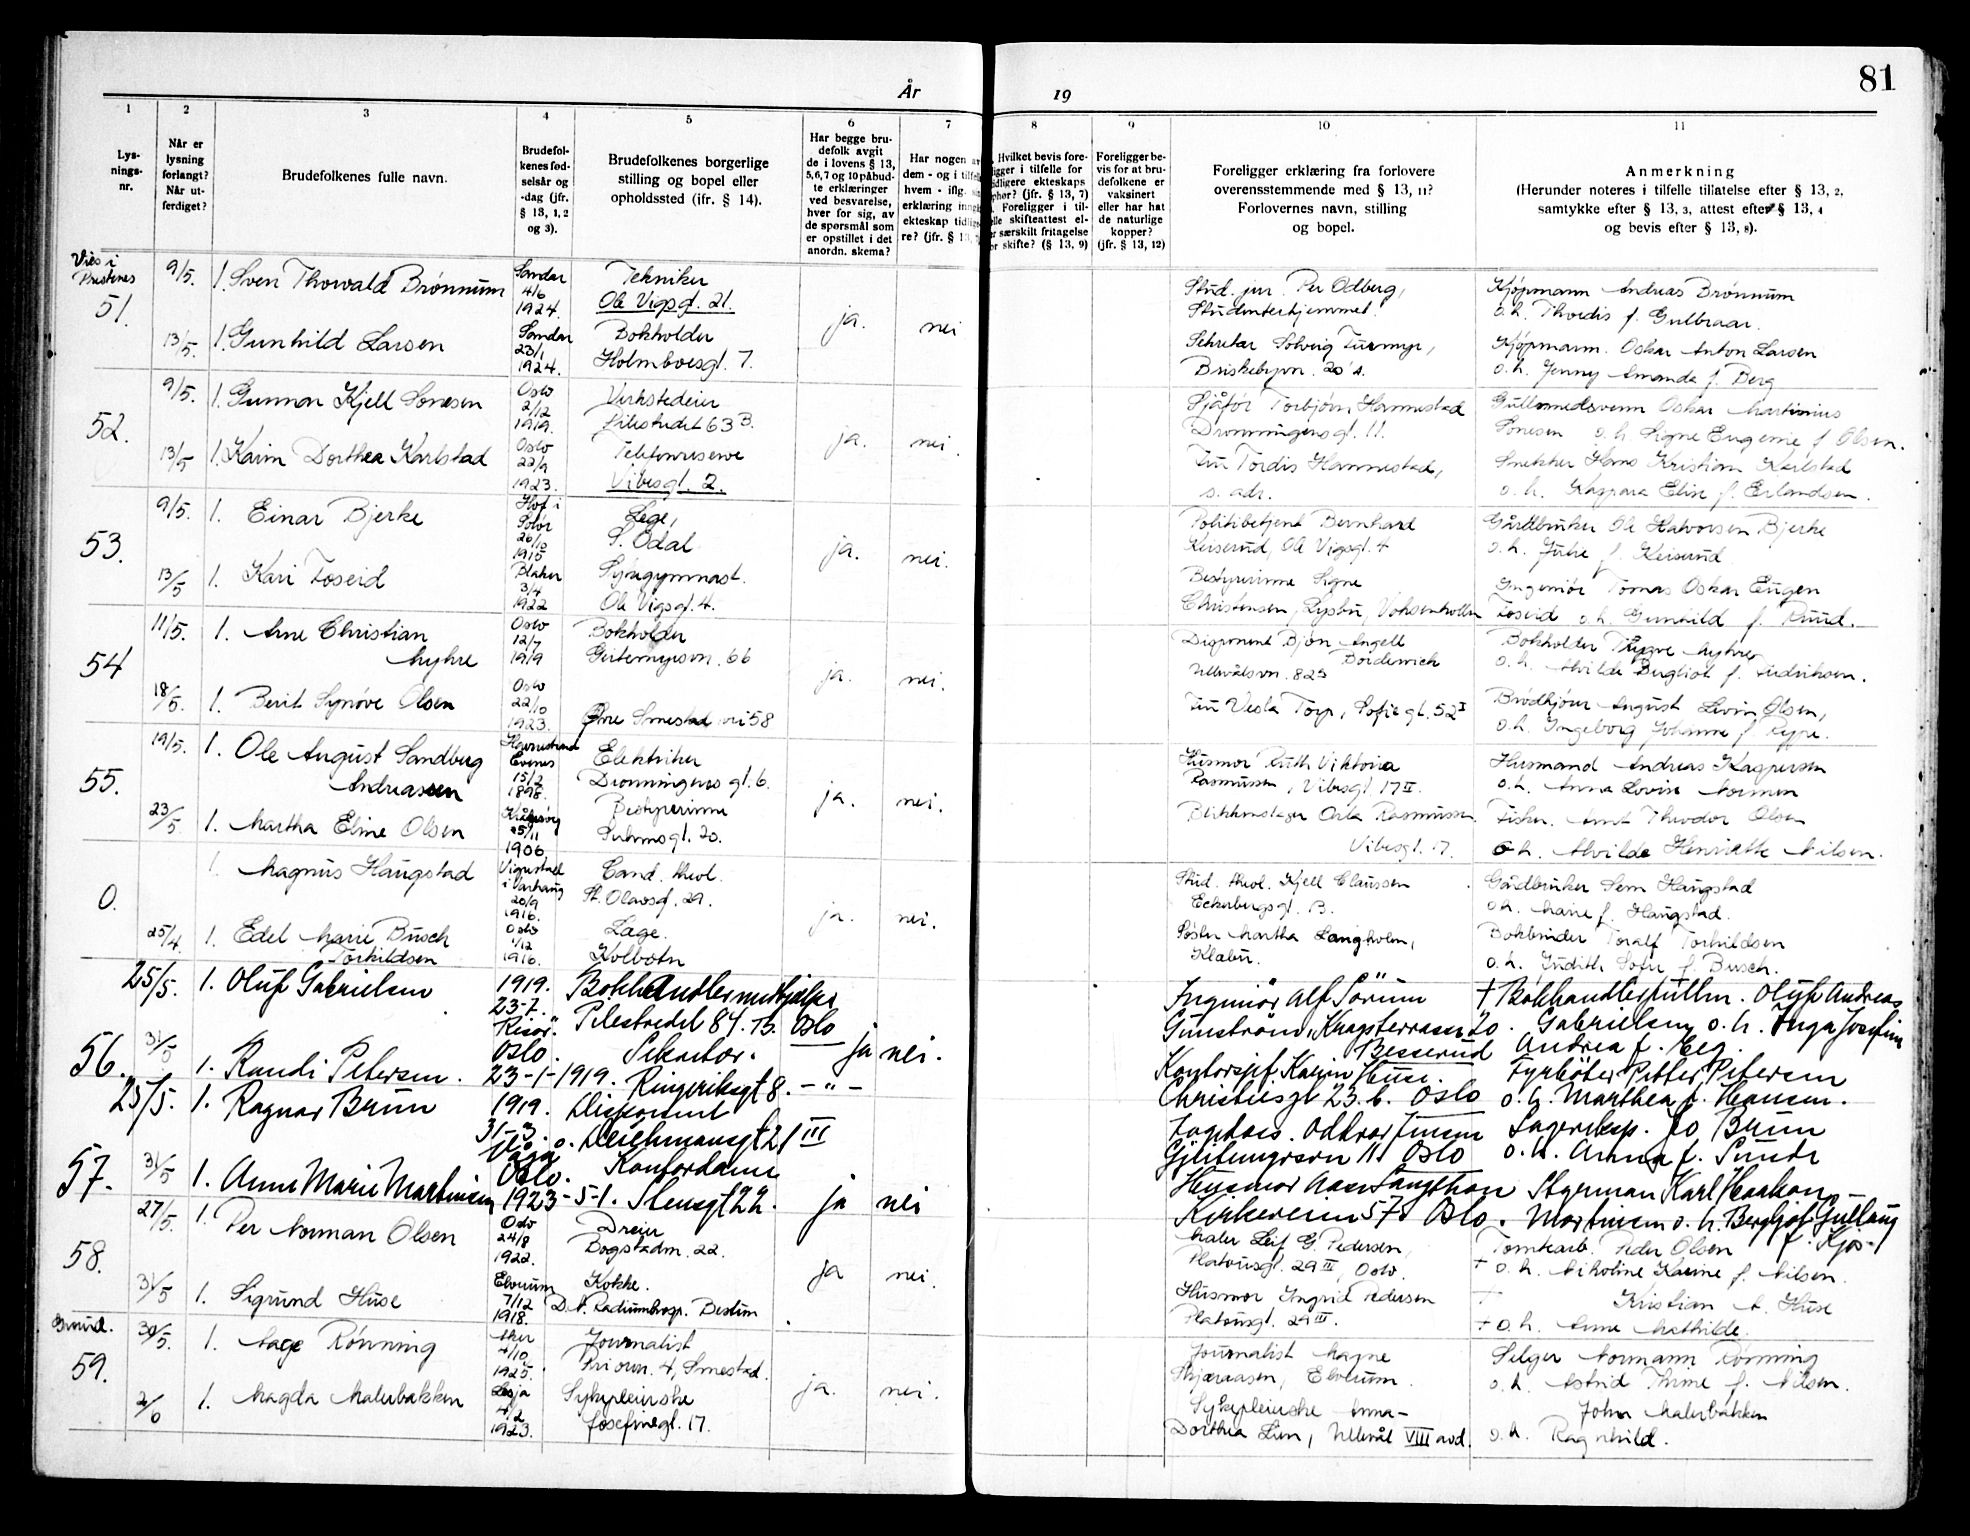 81
År 19
1 2 3 4 5 6 7 8 9 10 11
Lys-
nings-
nr.
Når er
lysning
forlangt?
Når ut-
ferdiget?
Brudefolkenes fulle navn.
Brudefol-
kenes fød-
selsår og
-dag (jfr.
§ 13, 1, 2
og 3).
Brudefolkenes borgerlige
stilling og bopel eller
opholdssted (ifr. § 14).
Har begge bru-
defolk avgit
de i lovens § 13,
5, 6, 7 og 10 påbud-
te erklæringer
ved besvarelse,
hver for sig, av
de spørsmål som
er opstillet i det
anordn. skema?
Har nogen av
dem - og i tilfelle
hvem - iflg.
erklæring inngått
ekteskap tidlige-
re? (jfr. § 13,
Hvilket bevis fore-
ligger i tilfelle for
tidligere ekteskaps
ophør? (jfr. § 13, 7)
Foreligger i til-
felle skifteattest el-
ler særskilt fritagelse
for skifte? (§ 13, 9)
Foreligger be-
vis for at bru-
defolkene er
vaksinert
eller har hat
de naturlige
kopper?
(jfr. § 13, 12)
Foreligger erklæring fra forlovere
overensstemmende med § 13, 11?
Forlovernes navn, stilling
og bopel.
Anmerkning
(Herunder noteres i tilfelle tillatelse efter § 13, 2,
samtykke efter § 13, 3, attest efter § 13, 4
og bevis efter § 13, 8).
Vies i
Prestenes
51.
9/5. 1. Sven Thorvald Brønnum
Sandar
4/6
1924.
Tekniker
Ole Vigsgt. 21.
ja. nei
Stud. jur. Per Odberg,
Studenterhjemmet.
Kjøpmann Andreas Brønnum
o.h. Thordis f. Gulbraar.
13/5. 1. Gunhild Larsen
Sandar
23/1
1924.
Bokholder
Holmboesgt. 7.
Sekretær Solveig Tuemyr,
Briskebyvn. 20
Kjøpmann. Oskar Anton Larsen
o.h. Jenny Amanda f. Berg
52.
9/5. 1. Gunnar Kjell Sønesen
Oslo
2/12
1919.
Verkstedeier
Pilestredet 63 B.
ja. nei.
Sjåfør Torbjørn Hannestad
Dronningensgt. 11.
Gullsmedsvenn Oskar Martinius
Sønesen o.h. Signe Eugenie f. Olsen.
13/5 1. Karin Dorthea Karlstad
Oslo
22/9
1923.
Telefonreserve
Vibesgt. 2.
Fru Tordis Hannestad,
s. adr.
Snekker Hans Kristian Karlstad
o.h. Kaspara Elise f. Erlandsen.
53.
9/5. 1. Einar Bjerke
Hof i
Solør
26/10
1915
Lege,
S. Odal
ja. nei.
Politibetjent Bernhard
Keiserud, Ole Vigsgt. 4
Gårdbruker Ole Halvorsen Bjerke
o.h. Julie f. Keiserud
13/5 1. Kari Foseid
Blaker
3/4
1922
Sykegymnast.
Ole Vigsgt. 4.
Bestyrerinne Signe
Christensen, Lysbu, Voksenkollen
Ingeniør Tomas Oskar Eugen
Foseid o.h. Gunhild f. Ruud.
54
11/5. 1. Arne Christian
Myhre
Oslo
12/7
1919
Bokholder
Geitemyrsvn. 66
ja. nei.
Disponent Bjørn Angell
Ullevålsvn. 82
Bokholder Trygve Myhre
o.h. Alvilde Bergliot f. Fredriksen.
18/5. 1. Berit Synøve Olsen
Oslo
22/10
1923.
Øvre Smestad vei 58
Fru Vesla Torp, Sofiegt. 52 I
Brødkjører August Levin Olsen,
o.h. Ingeborg Johanne f. Rype.
55.
19/5. 1. Ole August Sandberg
Andreassen
Evenes
15/2
1898.
Elektriker
Dronningensgt. 6.
ja. nei.
Husmor Ruth Viktoria
Rasmussen, Vibesgt. 17 II.
Husmand Andreas Kaspersen
o.h. Anna Lovise Normen
23/5 1. Martha Eline Olsen
25/11
1906
Bestyrerinne
Suhmsgt. 20.
Blikkenslager Orla Rasmussen
Vibesgt. 17.
Fisker. Arnt Theodor Olsen
o.h. Alvilde Henriette Nilsen.
0.
1. Magnus Haugstad
Vigrestad
i Varhaug
20/9
1916.
Cand. theol.
St. Olavsgt. 29.
ja. nei.
Stud. theol. Kjell Claussen
Eckersbergsgt. 13.
Gårdbruker Sem Haugstad
o.h. Marie f. Haugstad.
25/4 1. Edel Marie Busch
Torkildsen
Oslo
1/12
1916.
Lege.
Kolbotn
Søster Martha Langholm,
Klæbu.
Bokbinder Toralf Torkildsen
o.h. Judith Sofie f. Busch.
56.
25/5. 1. Oluf Gabrielsen
1919.
23-7.
Risør.
Bokhandlermedhjelper
Pilestredet 84. B. Oslo
ja nei.
Ingeniør Alf Sörum
Gunström, Kragsterrasse 20.
Besserud
† Bokhandlerfullm. Oluf Andreas
Gabrielsen o.h. Inga Josefine
Andrea f. Eeg.
31/5 1. Randi Petersen.
Oslo.
23-1-1919.
Sekretær.
Ringeriksgt 8. - " -
Kontorsjef. Karin Huse.
Christiesgt 23. b. Oslo
Fyrböter Petter Petersen
o.h. Marthea f. Hansen.
57.
25/5. 1. Ragnar Brun
1919.
31-3.
Disponent
Deichmansgt 21 III
ja nei
Fagdats. Oddvar Jensen
Gjeitemyrsvn 11. Oslo
Lagereksp. Jo Brun
o.h. Anna f. Sunde
31/5 1. Anne Marie Martinsen
Oslo.
1923-5-1.
Kontordame
Stensgt 22.
Husmor Aase Langthon
Kirkeveien 57. Oslo.
Styrman Karl Haakon
Martinsen o.h. Bergljot Gullaug
f. Kjos.
58.
27/5. 1. Per Norman Olsen
Oslo
24/8
1922.
Dreier
Bogstadvn. 22.
ja nei.
Maler Leif G. Pedersen,
Platousgt. 29 II, Oslo.
Tomtearb. Peder Olsen
† o.h. Nikoline Karine f. Nilsen.
31/5 1. Sigrund Huse
Elverum
7/12
1918.
Kokke.
D.N. Radiumhosp. Bestum
Husmor Ingrid Pedersen
Platousgt. 29 III.
† Kristian A. Huse
† o.h. Anne Mathilde.
59.
30/5. 1. Aage Rønning
Aker
4/10
1925.
Journalist
Priorvn. 4, Smestad.
ja. nei.
Journalist Magne
Skjæraasen, Elverum.
Selger Normann Rønning
o.h. Astrid Irene f. Nilsen.
2/6 1. Magda Malerbakken
Lesja
4/2
1923.
Sykepleierske
Josefinegt. 17.
Sykepleierske Anna-
Dorthea Lien, Ullevål VIII avd.
John Malerbakken
o.h. Ragnhild.